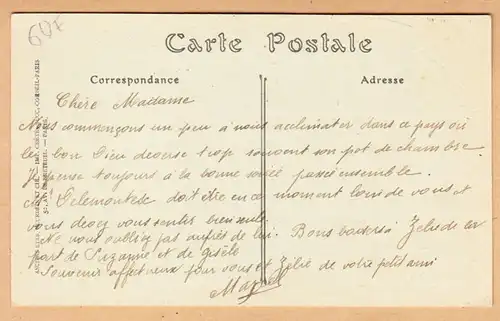 607
Carte Postale
Correspondance
Adresse
Chère Madame
Nous commençons un peu à nous acclimater dans ce pays où
le bon Dieu deverse trop souvent son pot de chambre
Je pense toujours à la bonne soirée passée ensemble.
doit être en ce moment loin de vous et
vous devez vous sentir bien seule
Ne nous oubliez pas auprès de lui. Bons baisers à Zélie de la
part de Suzanne et de Gisèle
Souvenir affectueux pour vous et Zélie de votre petit ami